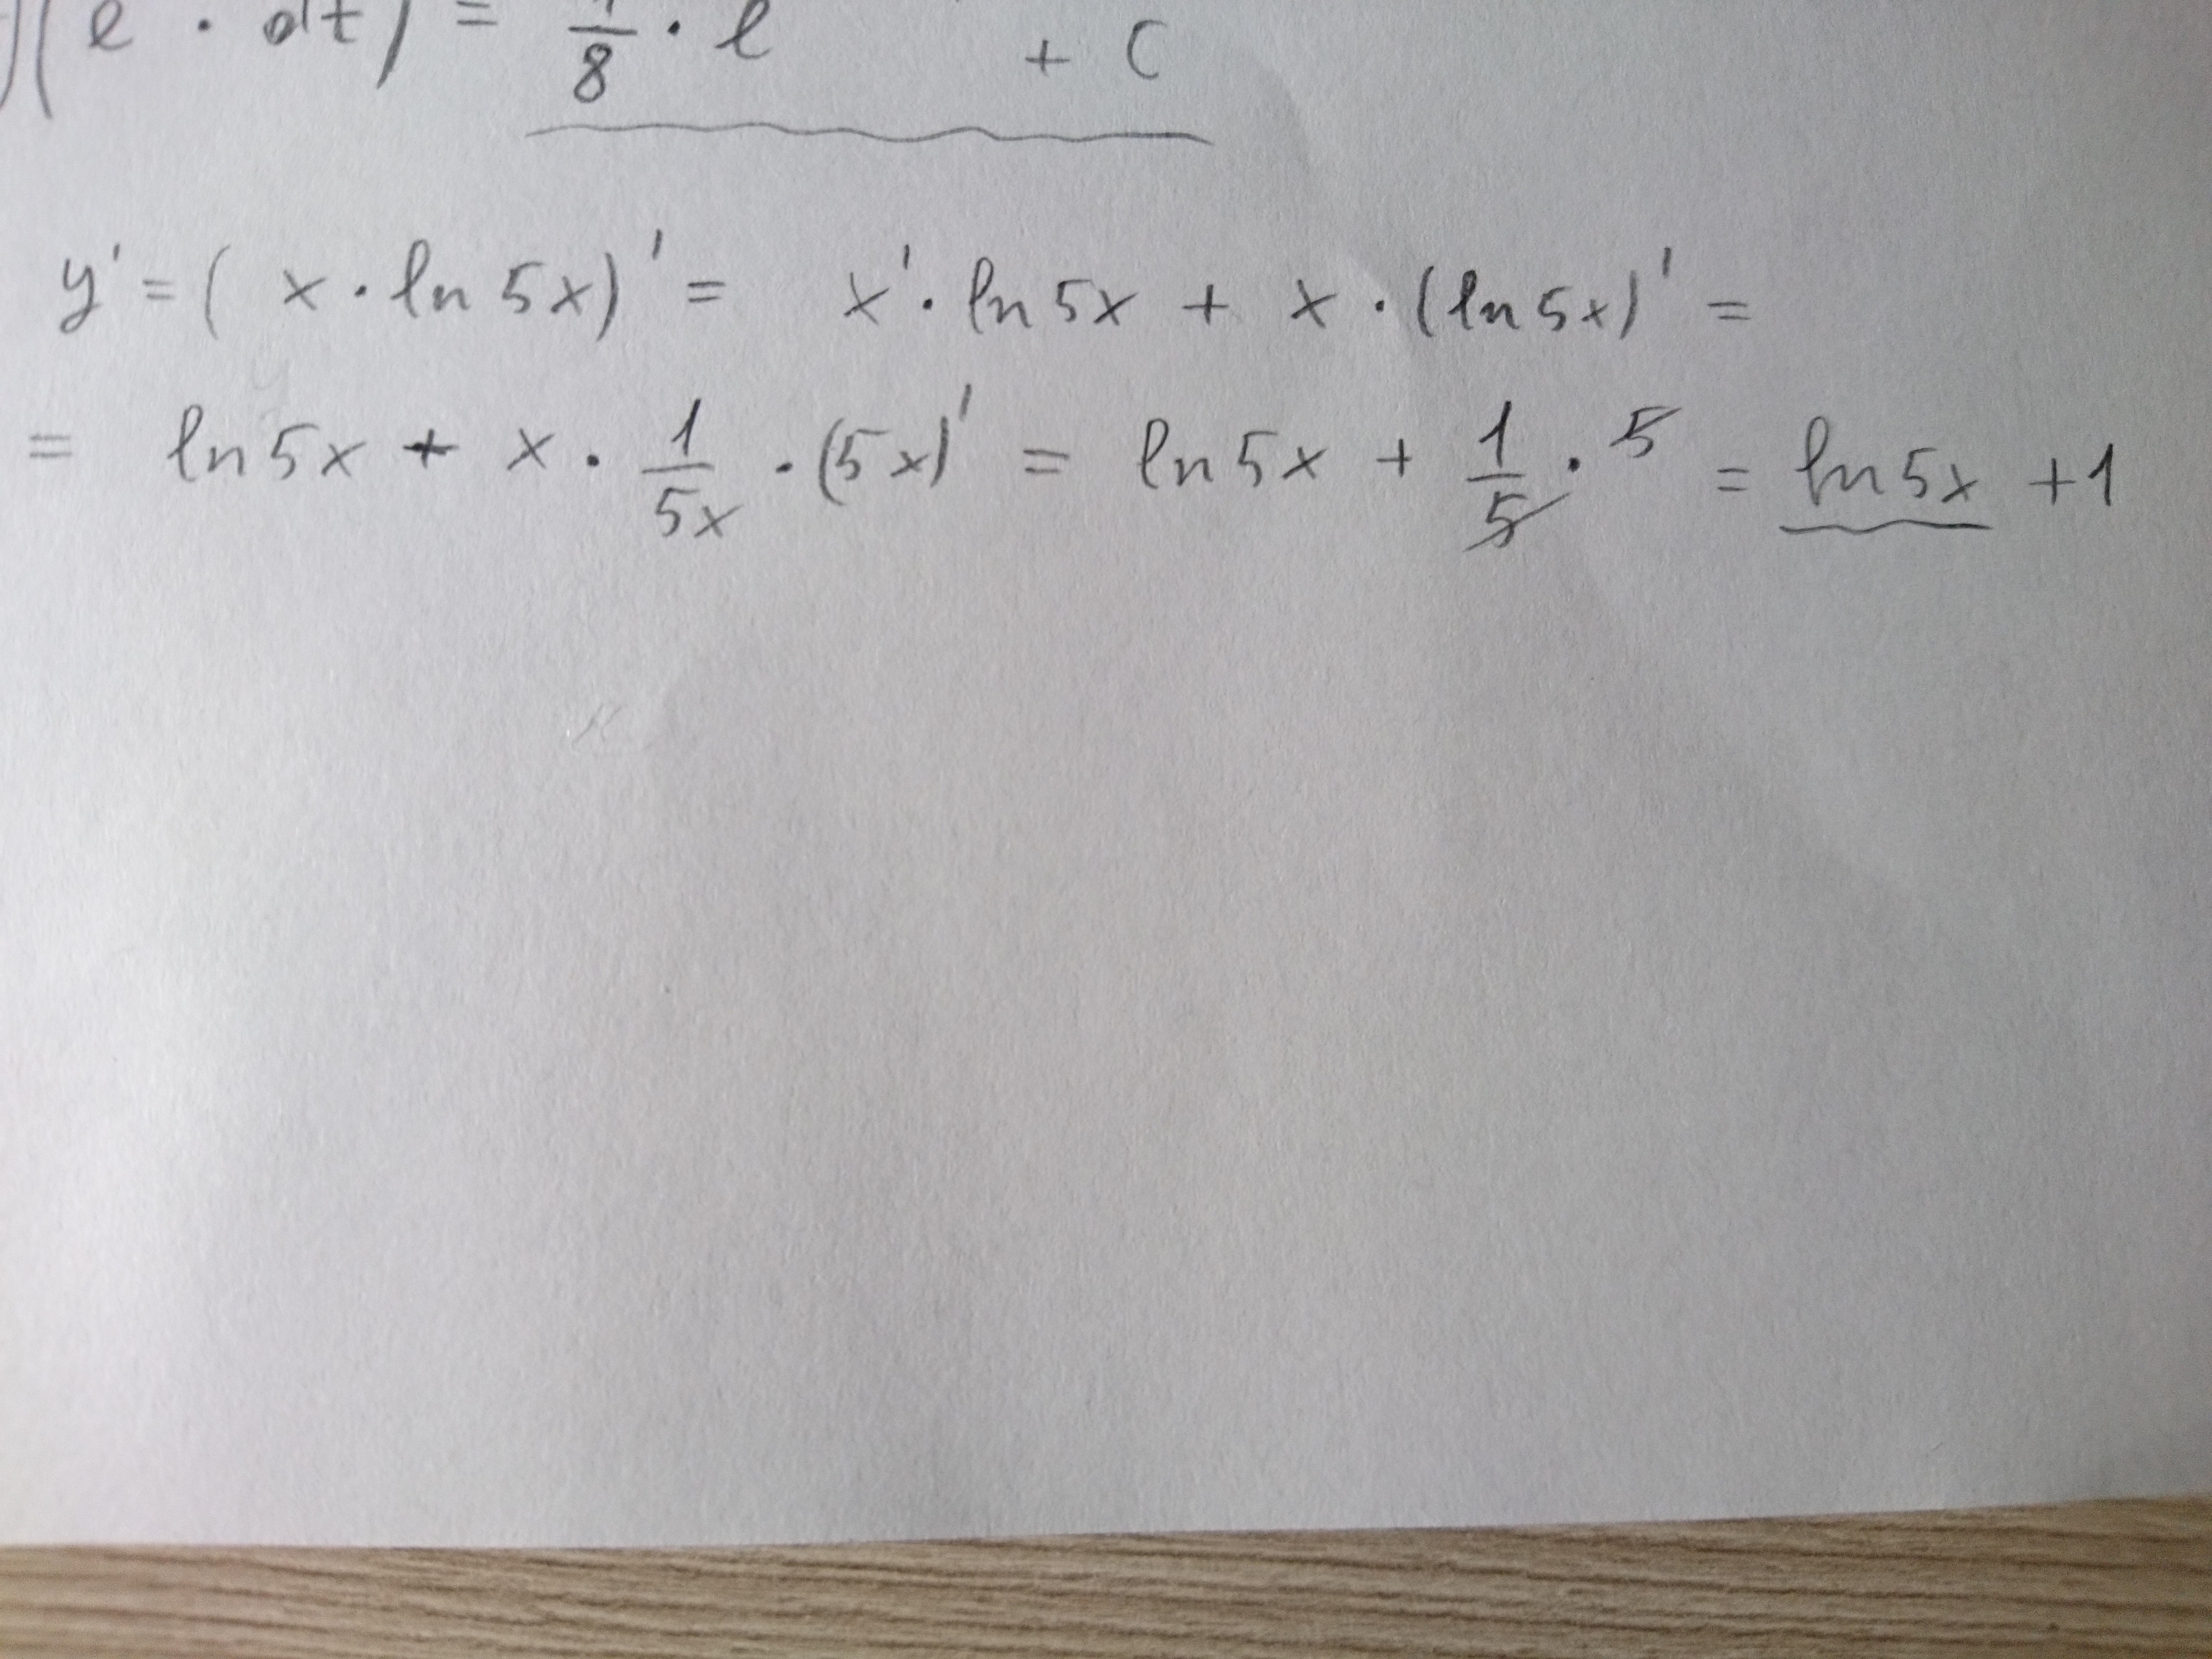 ∫(e · dt) = 1/8 · e + C
y' = ( x · ln 5x)' = x' · ln 5x + x · (ln 5x)' =
= ln 5x + x · 1/5x · (5x)' = ln 5x + 1/5 · 5 = ln 5x + 1